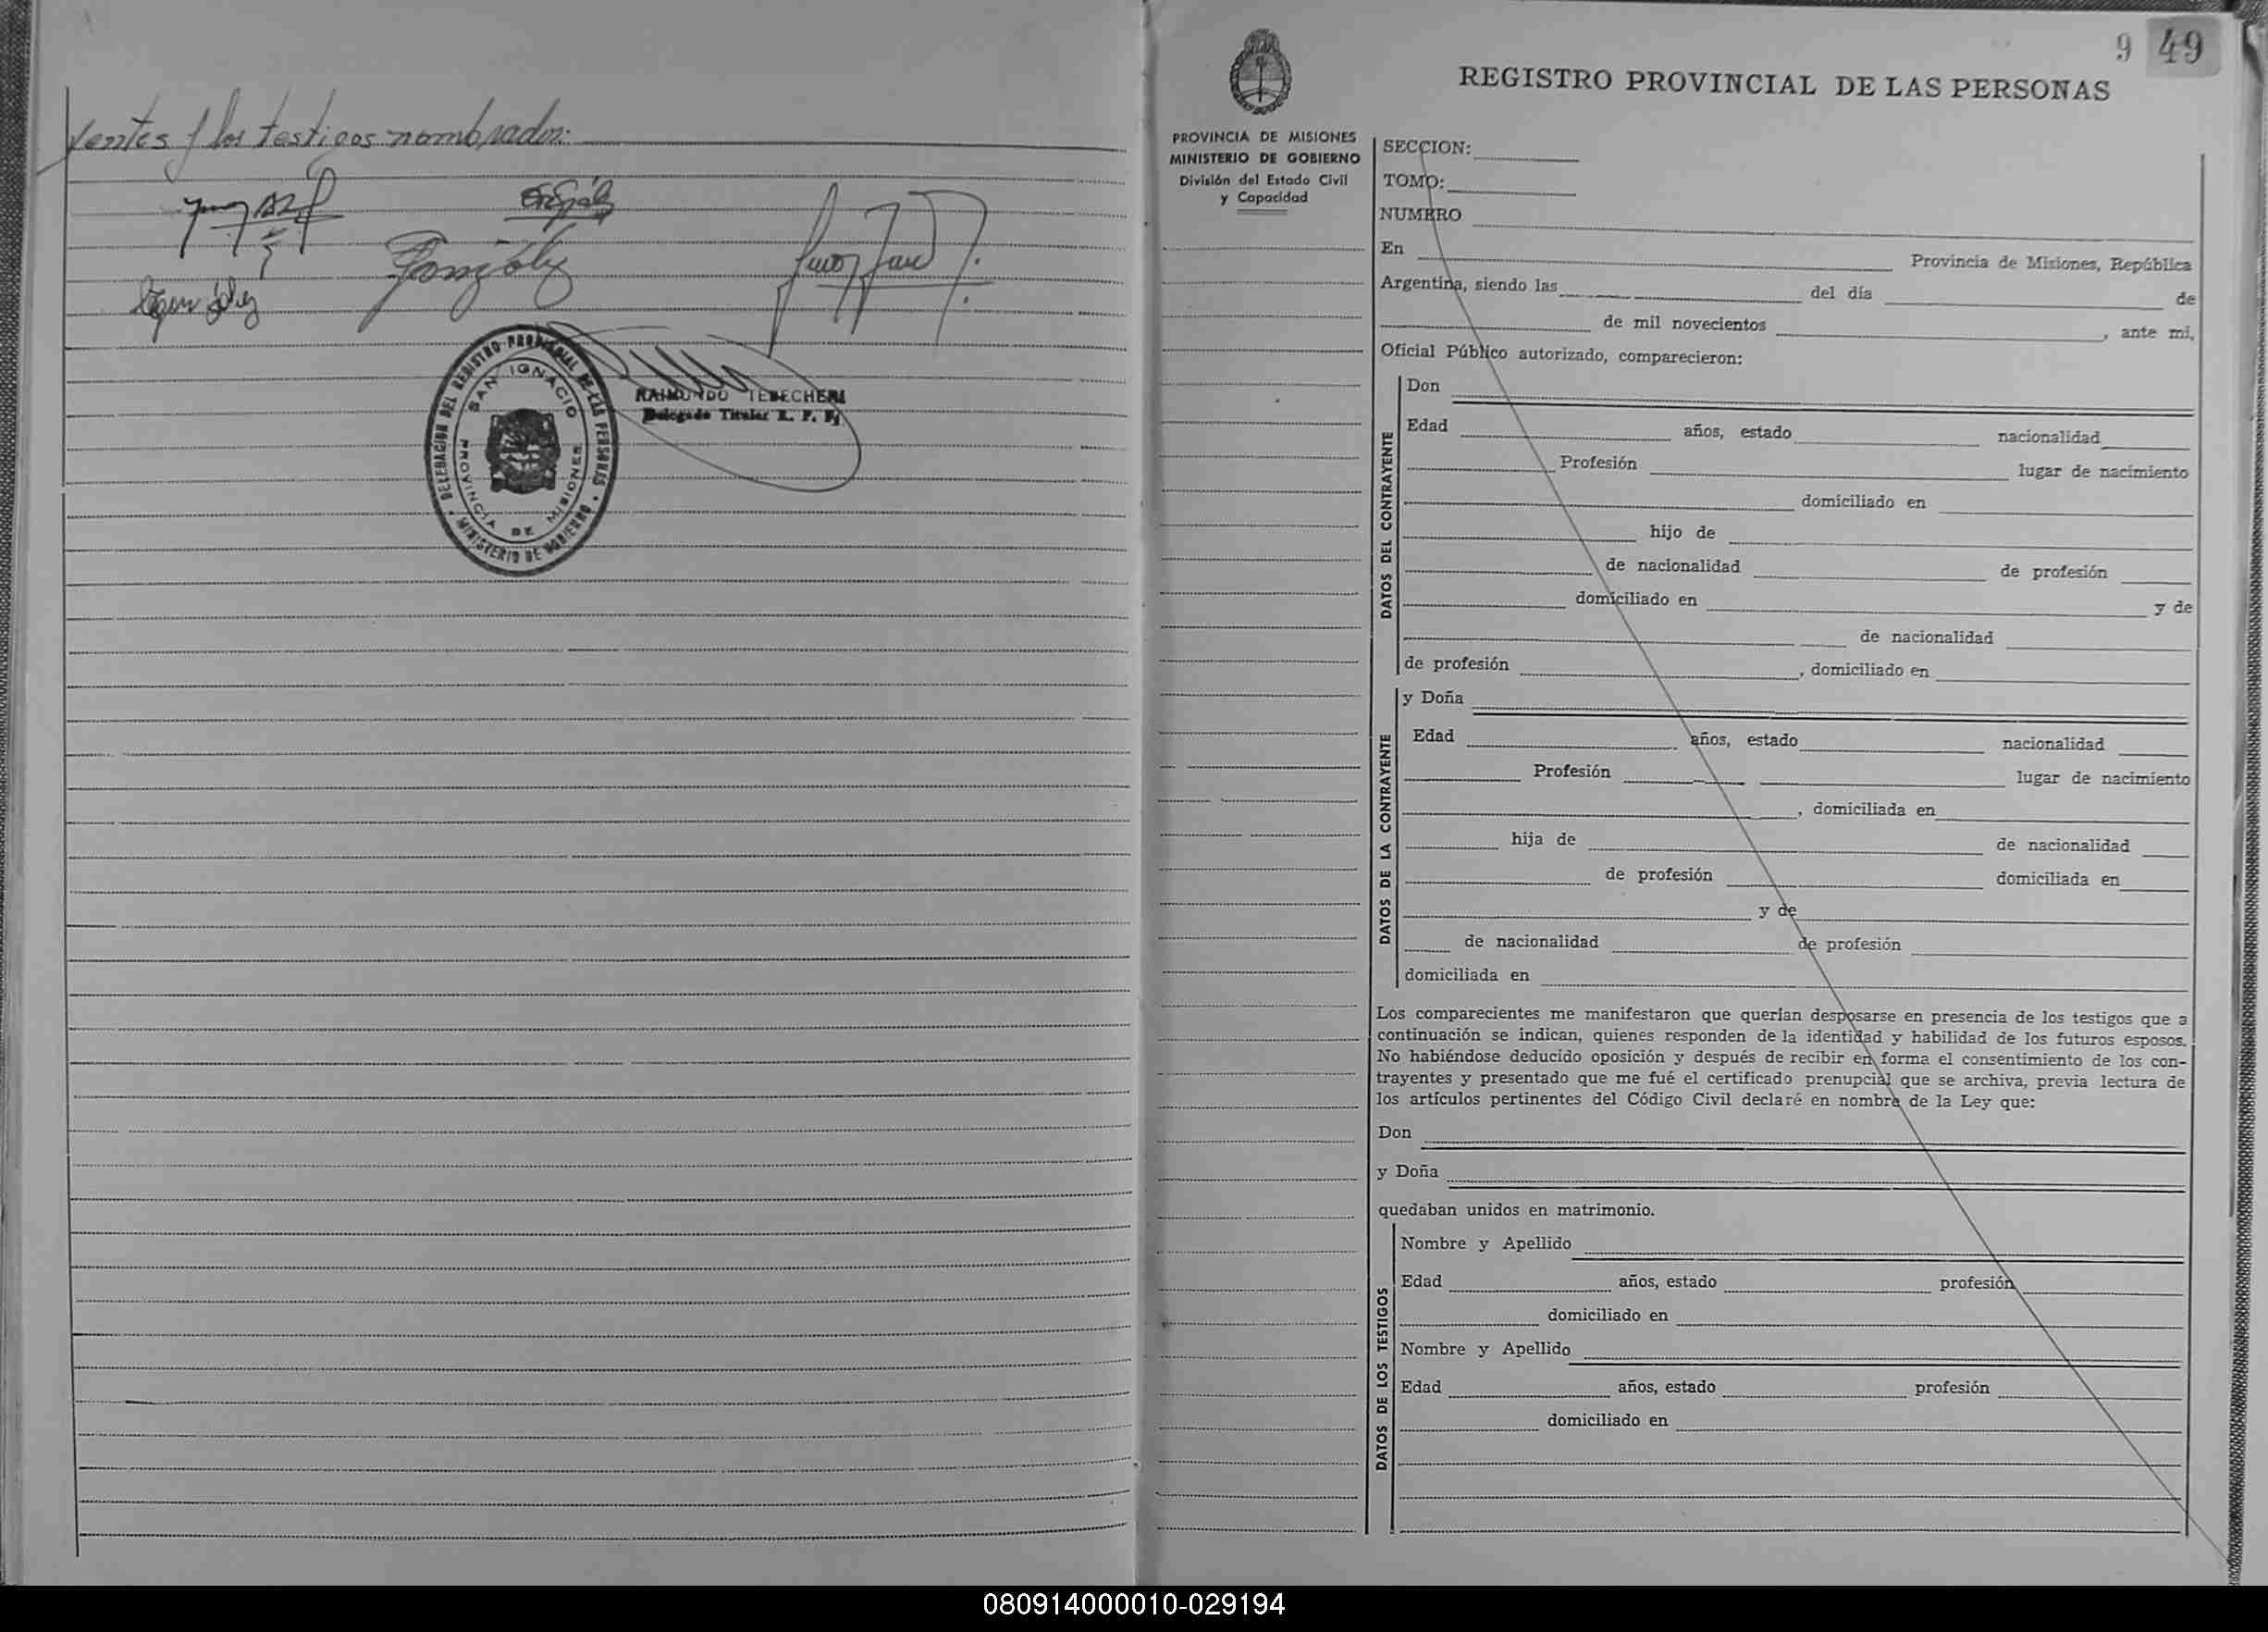 yentes y los testigos nombrados:
González
RAIMUNDO TEBECHERI
Delegado Titular R. P. P.
DELEGACION DEL REGISTRO PROVINCIAL DE LAS PERSONAS
MINISTERIO DE GOBIERNO
SAN IGNACIO
PROVINCIA DE MISIONES
9 49
REGISTRO PROVINCIAL DE LAS PERSONAS
PROVINCIA DE MISIONES
MINISTERIO DE GOBIERNO
División del Estado Civil
y Capacidad
SECCION:
TOMO:
NUMERO
En Provincia de Misiones, República
Argentina, siendo las del día de
de mil novecientos , ante mi,
Oficial Público autorizado, comparecieron:
DATOS DEL CONTRAYENTE
Don
Edad años, estado nacionalidad
Profesión lugar de nacimiento
domiciliado en
hijo de
de nacionalidad de profesión
domiciliado en y de
de nacionalidad
de profesión , domiciliado en
DATOS DE LA CONTRAYENTE
y Doña
Edad años, estado nacionalidad
Profesión lugar de nacimiento
, domiciliada en
hija de de nacionalidad
de profesión domiciliada en
y de
de nacionalidad de profesión
domiciliada en
Los comparecientes me manifestaron que querían desposarse en presencia de los testigos que a
continuación se indican, quienes responden de la identidad y habilidad de los futuros esposos.
No habiéndose deducido oposición y después de recibir en forma el consentimiento de los con-
trayentes y presentado que me fué el certificado prenupcial que se archiva, previa lectura de
los artículos pertinentes del Código Civil declaré en nombre de la Ley que:
Don
y Doña
quedaban unidos en matrimonio.
DATOS DE LOS TESTIGOS
Nombre y Apellido
Edad años, estado profesión
domiciliado en
Nombre y Apellido
Edad años, estado profesión
domiciliado en
080914000010-029194